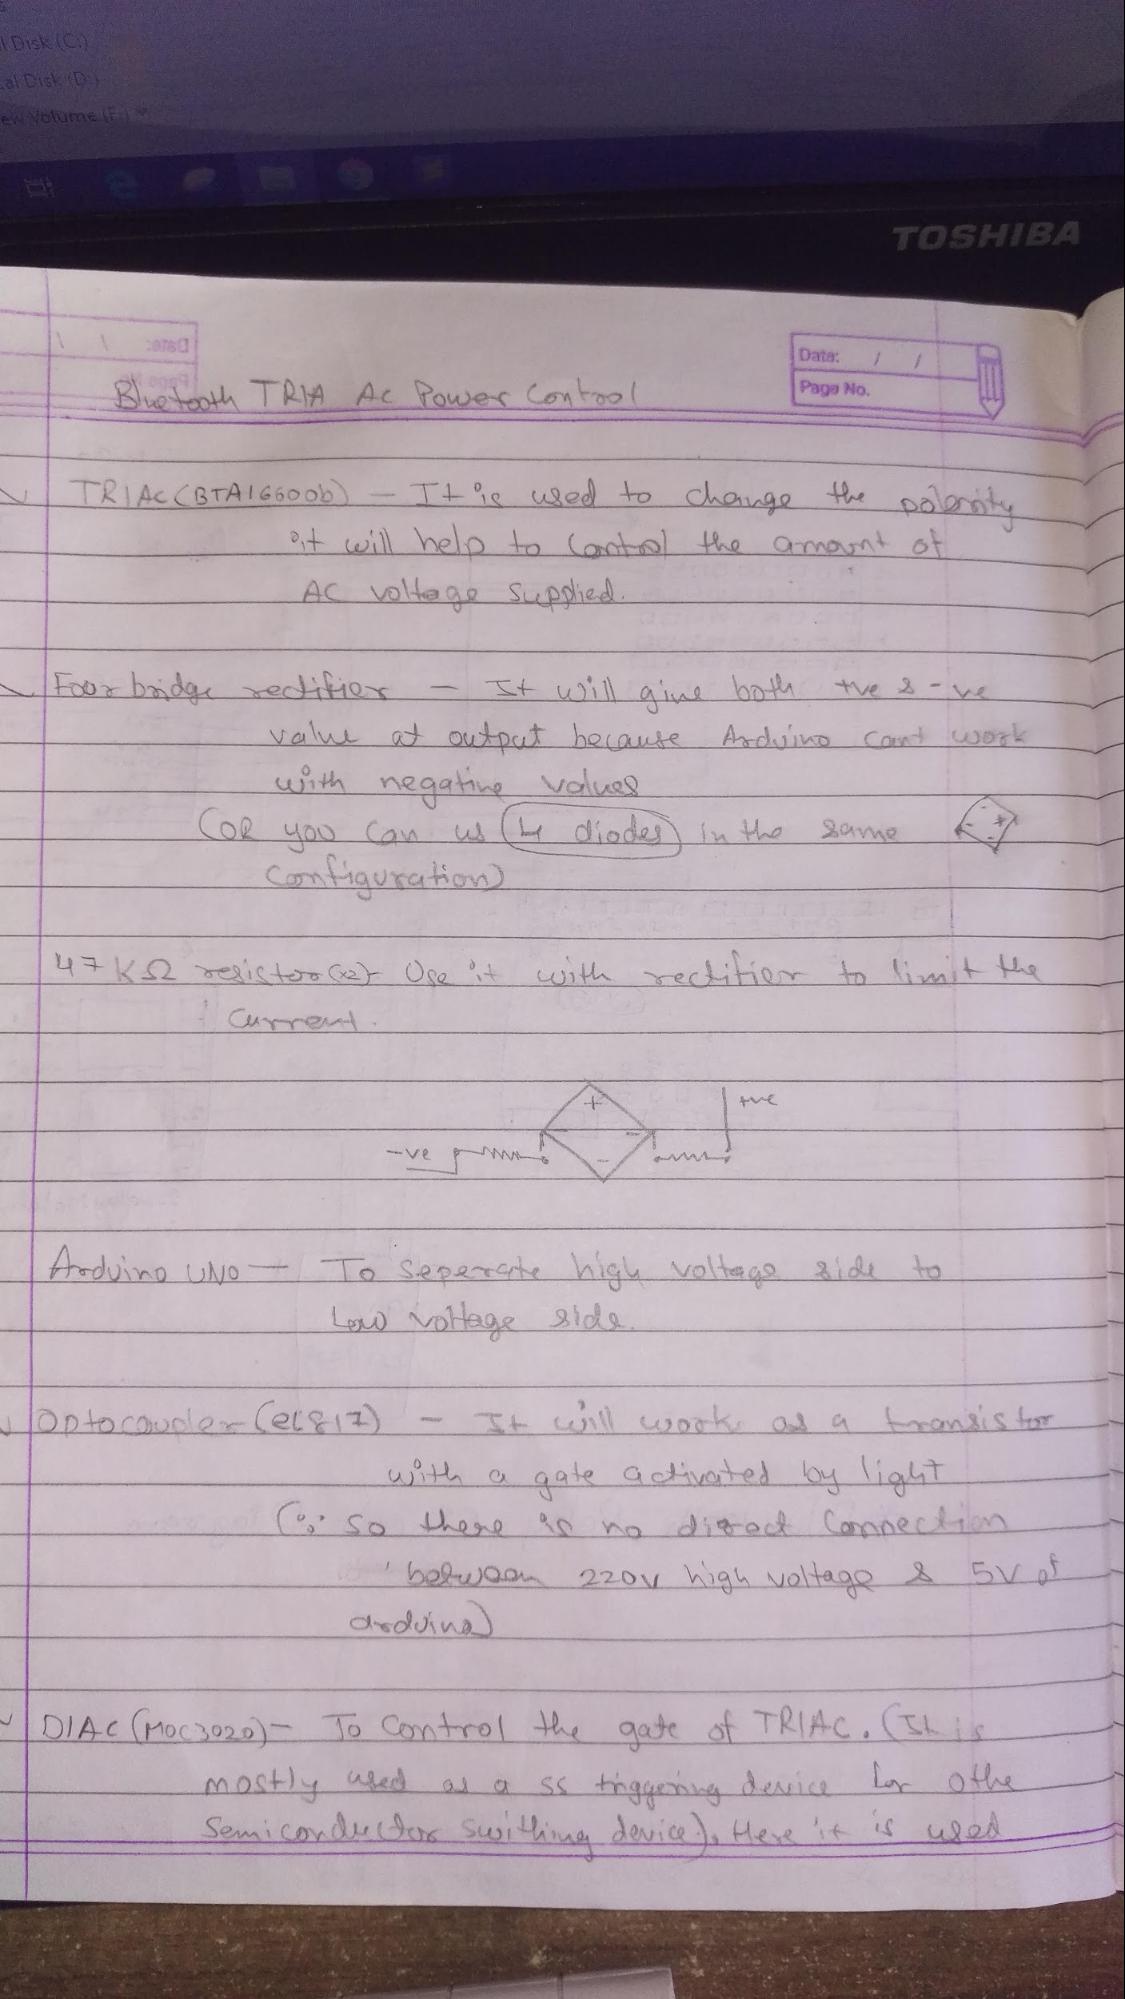 l Disk (C:)
cal Disk (D:)
ew Volume (F:)
TOSHIBA
Date: / /
Page No.
Bluetooth TRIA AC Power Control
TRIAC (BTA16600b) - It is used to change the polarity
it will help to control the amount of
AC voltage supplied.
Four bridge rectifier - It will give both +ve & -ve
value at output because Arduino cant work
with negative values
(OR you can us 4 diodes in the same
configuration)
47 KΩ resistor (x2) - Use it with rectifier to limit the
current.
+ve
+
-ve
-
Arduino UNO - To seperate high voltage side to
Low voltage side.
Optocoupler (el817) - It will work as a transistor
with a gate activated by light
(∵ so there is no direct connection
between 220V high voltage & 5V of
arduino)
DIAC (MOC3020) - To control the gate of TRIAC. (It is
mostly used as a SS triggering device for othe
semiconductor swithing device). Here it is used